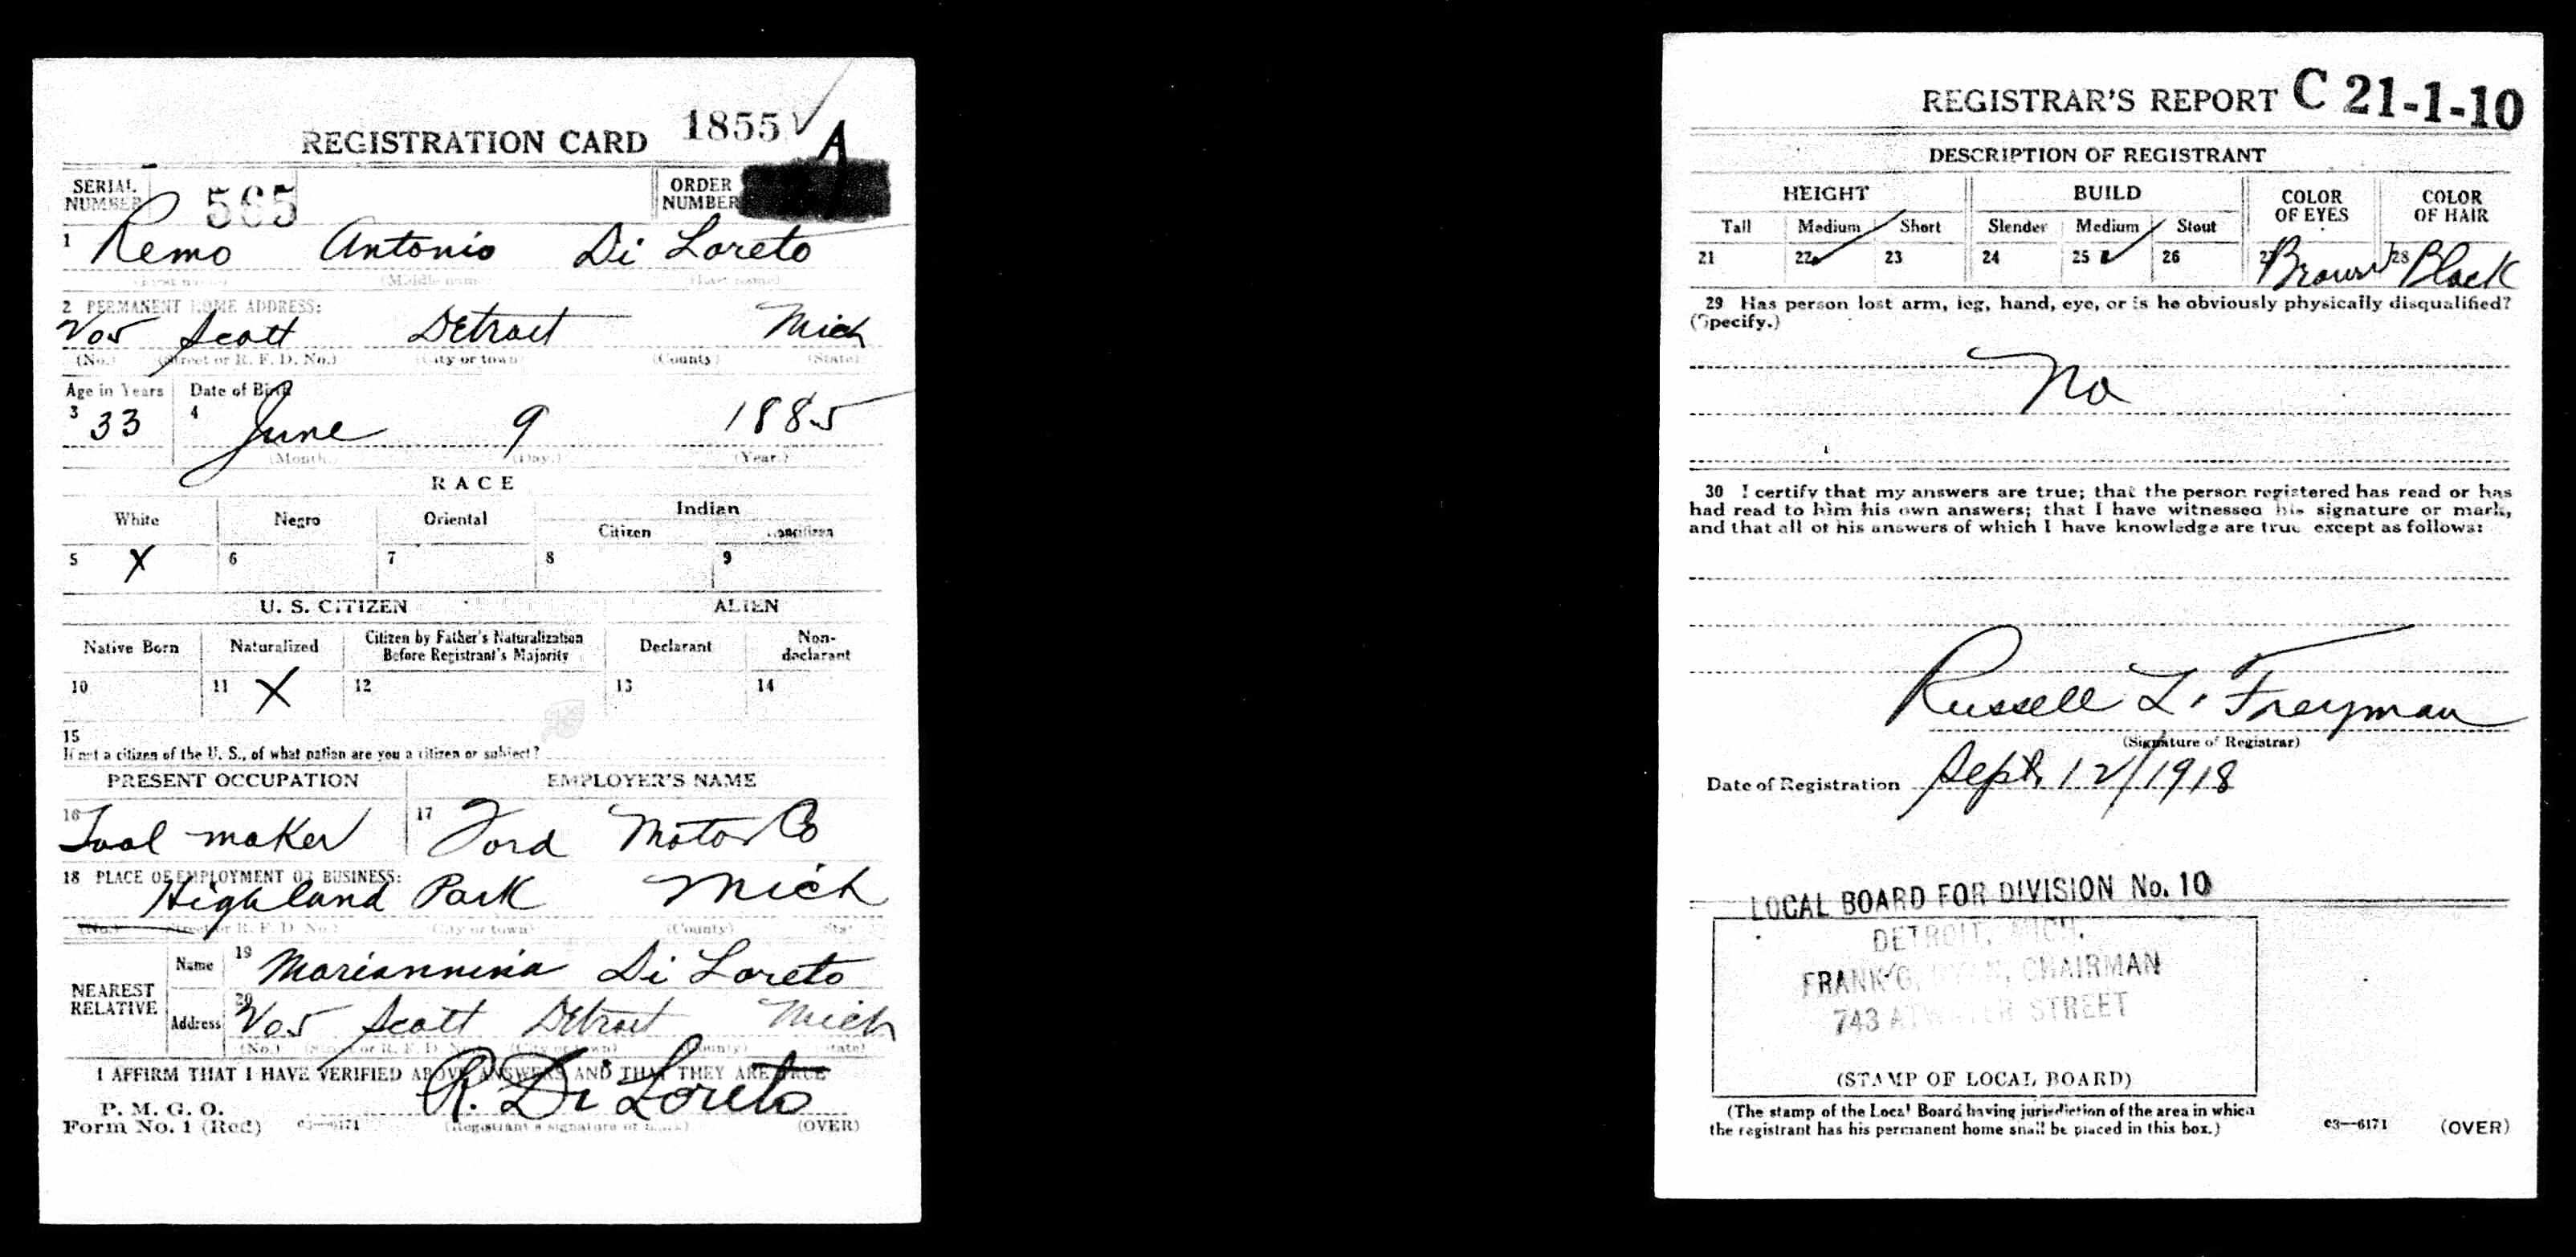 REGISTRATION CARD 1855 A
SERIAL NUMBER 565 ORDER NUMBER
1 Remo Antonio Di Loreto
(First name) (Middle name) (Last name)
2 PERMANENT HOME ADDRESS:
205 Scott Detroit Mich
(No.) (Street or R. F. D. No.) (City or town) (County) (State)
Age in Years Date of Birth
3 33 4 June 9 1885
(Month.) (Day.) (Year.)
RACE
White Negro Oriental Indian
Citizen Noncitizen
5 X 6 7 8 9
U. S. CITIZEN ALIEN
Native Born Naturalized Citizen by Father's Naturalization Before Registrant's Majority Declarant Non-declarant
10 11 X 12 13 14
15
If not a citizen of the U. S., of what nation are you a citizen or subject?
PRESENT OCCUPATION EMPLOYER'S NAME
16 Tool maker 17 Ford Motor Co
18 PLACE OF EMPLOYMENT OR BUSINESS:
Highland Park Mich
(No.) (Street or R. F. D. No.) (City or town) (County) (State)
NEAREST RELATIVE Name 19 Mariannina Di Loreto
Address 20 205 Scott Detroit Mich
(No.) (Street or R. F. D. No.) (City or town) (County) (State)
I AFFIRM THAT I HAVE VERIFIED ABOVE ANSWERS AND THAT THEY ARE TRUE
P. M. G. O.
Form No. 1 (Red) 03—6171 R. Di Loreto
(Registrant's signature or mark) (OVER)
REGISTRAR'S REPORT C 21-1-10
DESCRIPTION OF REGISTRANT
HEIGHT BUILD COLOR OF EYES COLOR OF HAIR
Tall Medium Short Slender Medium Stout
21 22 23 24 25 26 27 Brown 28 Black
29 Has person lost arm, leg, hand, eye, or is he obviously physically disqualified?
(Specify.)
No
30 I certify that my answers are true; that the person registered has read or has
had read to him his own answers; that I have witnessed his signature or mark,
and that all of his answers of which I have knowledge are true except as follows:
Russell L. Freyman
(Signature of Registrar)
Date of Registration Sept. 12/1918
LOCAL BOARD FOR DIVISION No. 10
DETROIT, MICH.
FRANK G. CHAIRMAN
743 ATWATER STREET
(STAMP OF LOCAL BOARD)
(The stamp of the Local Board having jurisdiction of the area in which
the registrant has his permanent home shall be placed in this box.)
03—6171 (OVER)